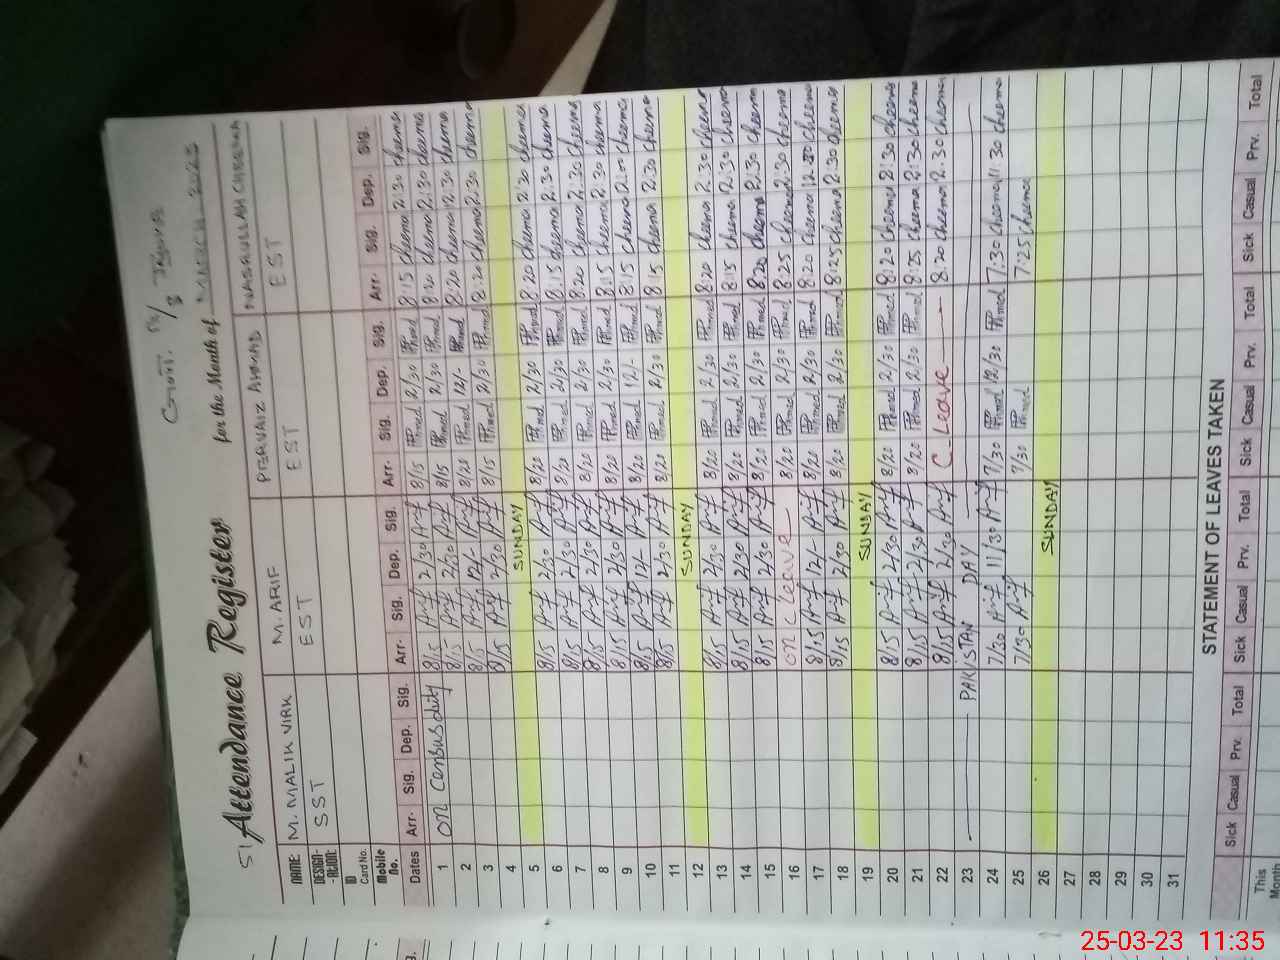 51 Attendance Register for the Month of MARCH 2023
NAME: M. MALIK VIRK M. ARIF PERVAIZ AHMAD NASRULLAH CHEEMA
DESIGN-ATION: SST EST EST EST
ID Card No.
Mobile No.
Dates Arr. Sig. Dep. Sig. Arr. Sig. Dep. Sig. Arr. Sig. Dep. Sig. Arr. Sig. Dep. Sig.
1 on census duty 8/15 Arif 2/30 Arif 8/15 PAhmed 2/30 PAhmed 8:15 cheema 2:30 cheema
2 8/15 Arif 2/30 Arif 8/15 PAhmed 2/30 PAhmed 8:20 cheema 2:30 cheema
3 8/15 Arif 12/- Arif 8/20 PAhmed 12/- PAhmed 8:20 cheema 12:30 cheema
4 8/15 Arif 2/30 Arif 8/15 PAhmed 2/30 PAhmed 8:20 cheema 2:30 cheema
5 SUNDAY
6 8/15 Arif 2/30 Arif 8/20 PAhmed 2/30 PAhmed 8:20 cheema 2:30 cheema
7 8/15 Arif 2/30 Arif 8/20 PAhmed 2/30 PAhmed 8:15 cheema 2:30 cheema
8 8/15 Arif 2/30 Arif 8/20 PAhmed 2/30 PAhmed 8:20 cheema 2:30 cheema
9 8/15 Arif 2/30 Arif 8/20 PAhmed 2/30 PAhmed 8:15 cheema 2:30 cheema
10 8/15 Arif 12/- Arif 8/20 PAhmed 12/- PAhmed 8:15 cheema 12:00 cheema
11 8/15 Arif 2/30 Arif 8/20 PAhmed 2/30 PAhmed 8:15 cheema 2:30 cheema
12 SUNDAY
13 8/15 Arif 2/30 Arif 8/20 PAhmed 2/30 PAhmed 8:20 cheema 2:30 cheema
14 8/15 Arif 2/30 Arif 8/20 PAhmed 2/30 PAhmed 8:15 cheema 2:30 cheema
15 8/15 Arif 2/30 Arif 8/20 PAhmed 2/30 PAhmed 8:20 cheema 2:30 cheema
16 on c leave 8/20 PAhmed 2/30 PAhmed 8:25 cheema 2:30 cheema
17 8/15 Arif 12/- Arif 8/20 PAhmed 2/30 PAhmed 8:20 cheema cheema
18 8/15 Arif 2/30 Arif 8/20 PAhmed 2/30 PAhmed 8:25 cheema 2:30 cheema
19 SUNDAY
20 8/15 Arif 2/30 Arif 8/20 PAhmed 2/30 PAhmed 8:20 cheema 2:30 cheema
21 8/15 Arif 2/30 Arif 8/20 PAhmed 2/30 PAhmed 8:25 cheema 2:30 cheema
22 8/15 Arif 2/30 Arif C. Leave 8:20 cheema 2:30 cheema
23 PAKISTAN DAY
24 7/30 Arif 11/30 Arif 7/30 PAhmed 12/30 PAhmed 7:30 cheema 11:30 cheema
25 7/30 Arif 7/30 PAhmed 7:25 cheema
26 SUNDAY
27
28
29
30
31
STATEMENT OF LEAVES TAKEN
Sick Casual Prv. Total Sick Casual Prv. Total Sick Casual Prv. Total Sick Casual Prv. Total
This Month
25-03-23 11:35